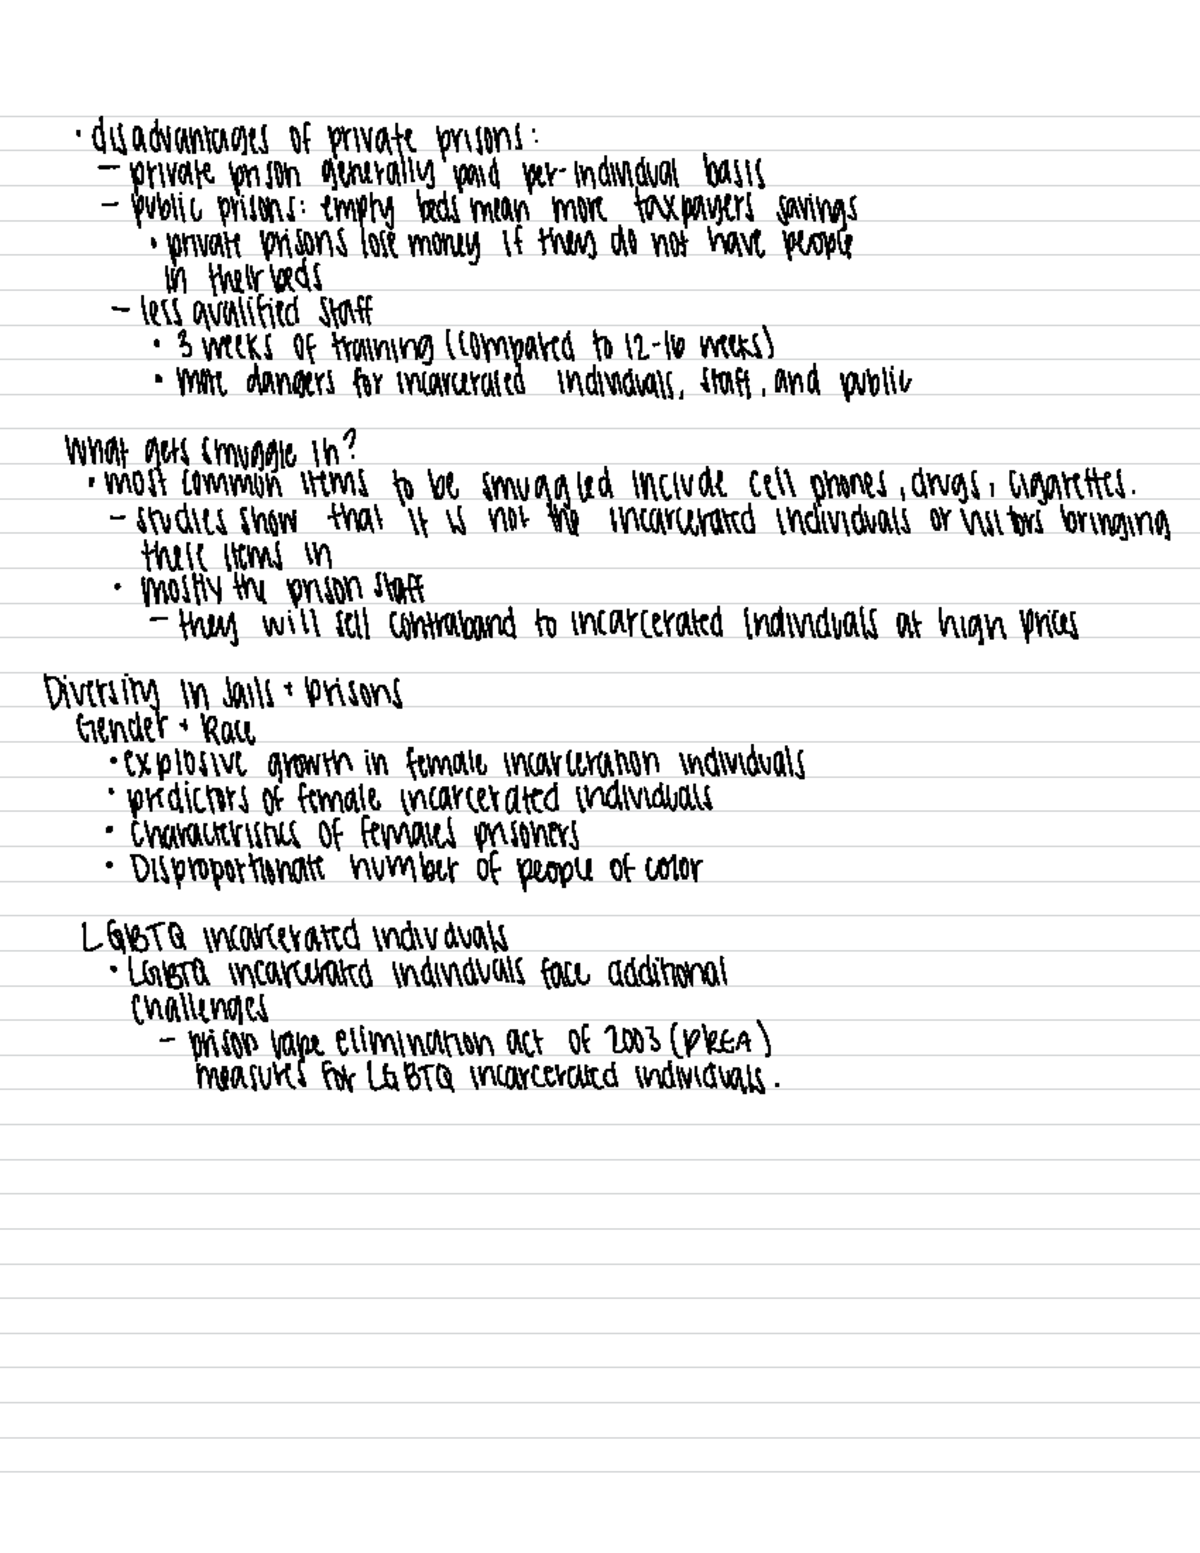 · disadvantages of private prisons:
– private prison generally paid per-individual basis
– public prisons: empty beds mean more taxpayers savings
· private prisons lose money if they do not have people
in their beds
– less qualified staff
· 3 weeks of training (compared to 12-16 weeks)
· more dangers for incarcerated individuals, staff, and public
What gets smuggle in?
· most common items to be smuggled include cell phones, drugs, cigarettes.
– studies show that it is not the incarcerated individuals or visitors bringing
these items in
· mostly the prison staff
– they will sell contraband to incarcerated individuals at high prices
Diversity in Jails + prisons
Gender + Race
· explosive growth in female incarceration individuals
· predictors of female incarcerated individuals
· characteristics of females prisoners
· Disproportionate number of people of color
LGBTQ incarcerated indivduals
· LGBTQ incarcerated individuals face additional
challenges
– prison rape elimination act of 2003 (PREA)
measures for LGBTQ incarcerated individuals.